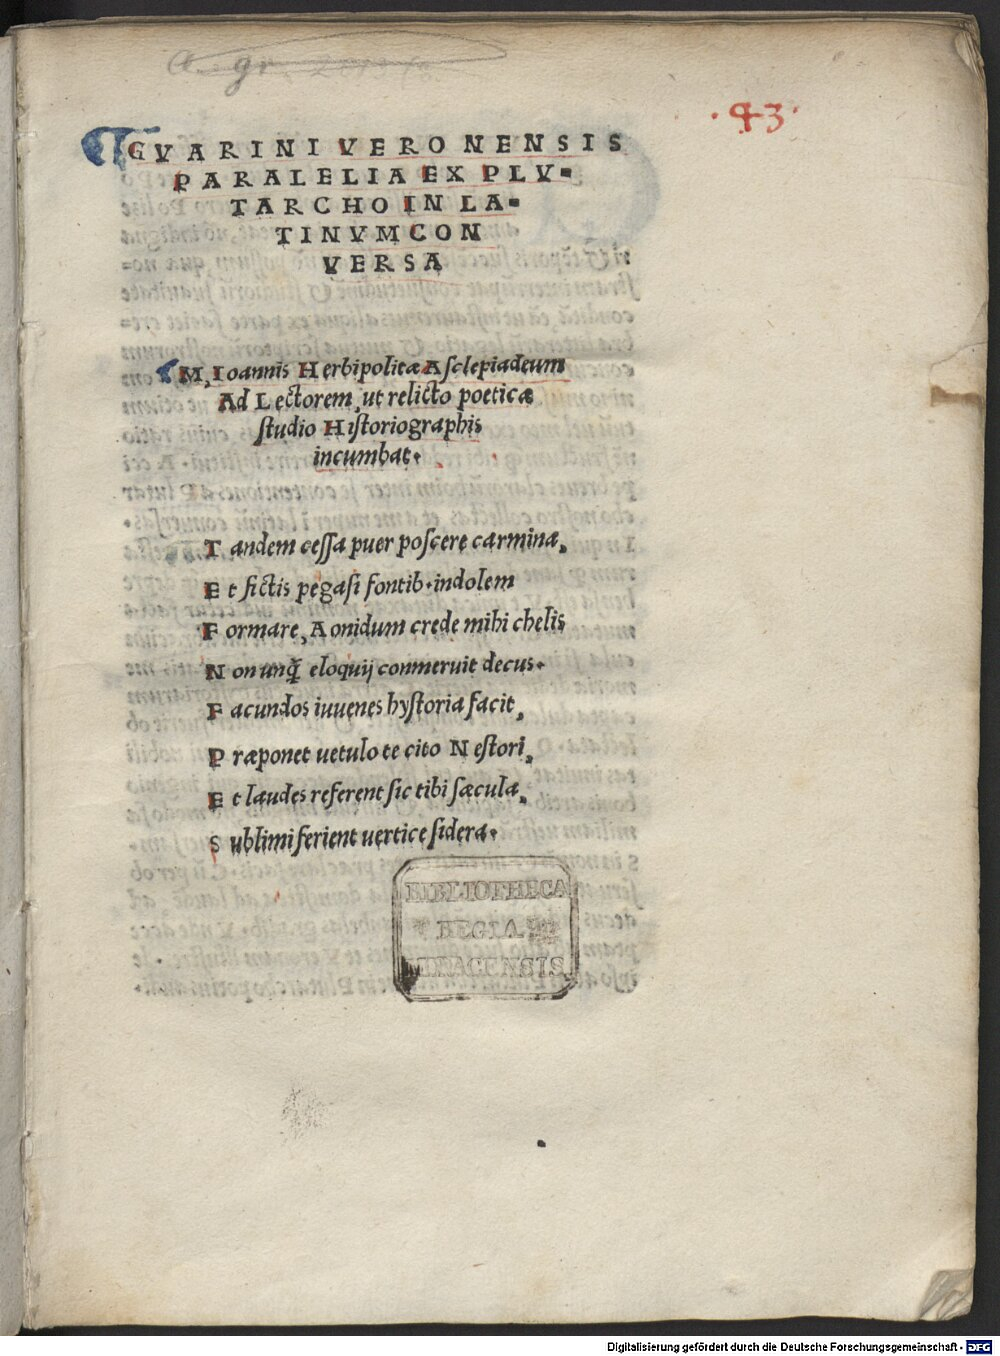 .43.
GVARINI VERONENSIS
PARALELIA EX PLV-
TARCHO IN LA-
TINVM CON
VERSA
M, Ioannis Herbipolitæ Asclepiadeum
Ad Lectorem, ut relicto poeticæ
studio Historiographis
incumbat.
Tandem cessa puer poscere carmina,
Et fictis pegasi fontib. indolem
Formare, Aonidum crede mihi chelis
Non unq̃ eloquij conmeruit decus.
Facundos iuuenes hystoria facit,
Præponet uetulo te cito Nestori,
Et laudes referent sic tibi sæcula,
Sublimi ferient uertice sidera.
BIBLIOTHECA
REGIA
MONACENSIS
Digitalisierung gefördert durch die Deutsche Forschungsgemeinschaft - DFG